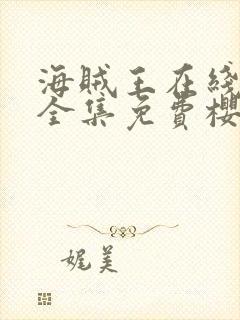 海賊王在綫
全集免費櫻
娓美